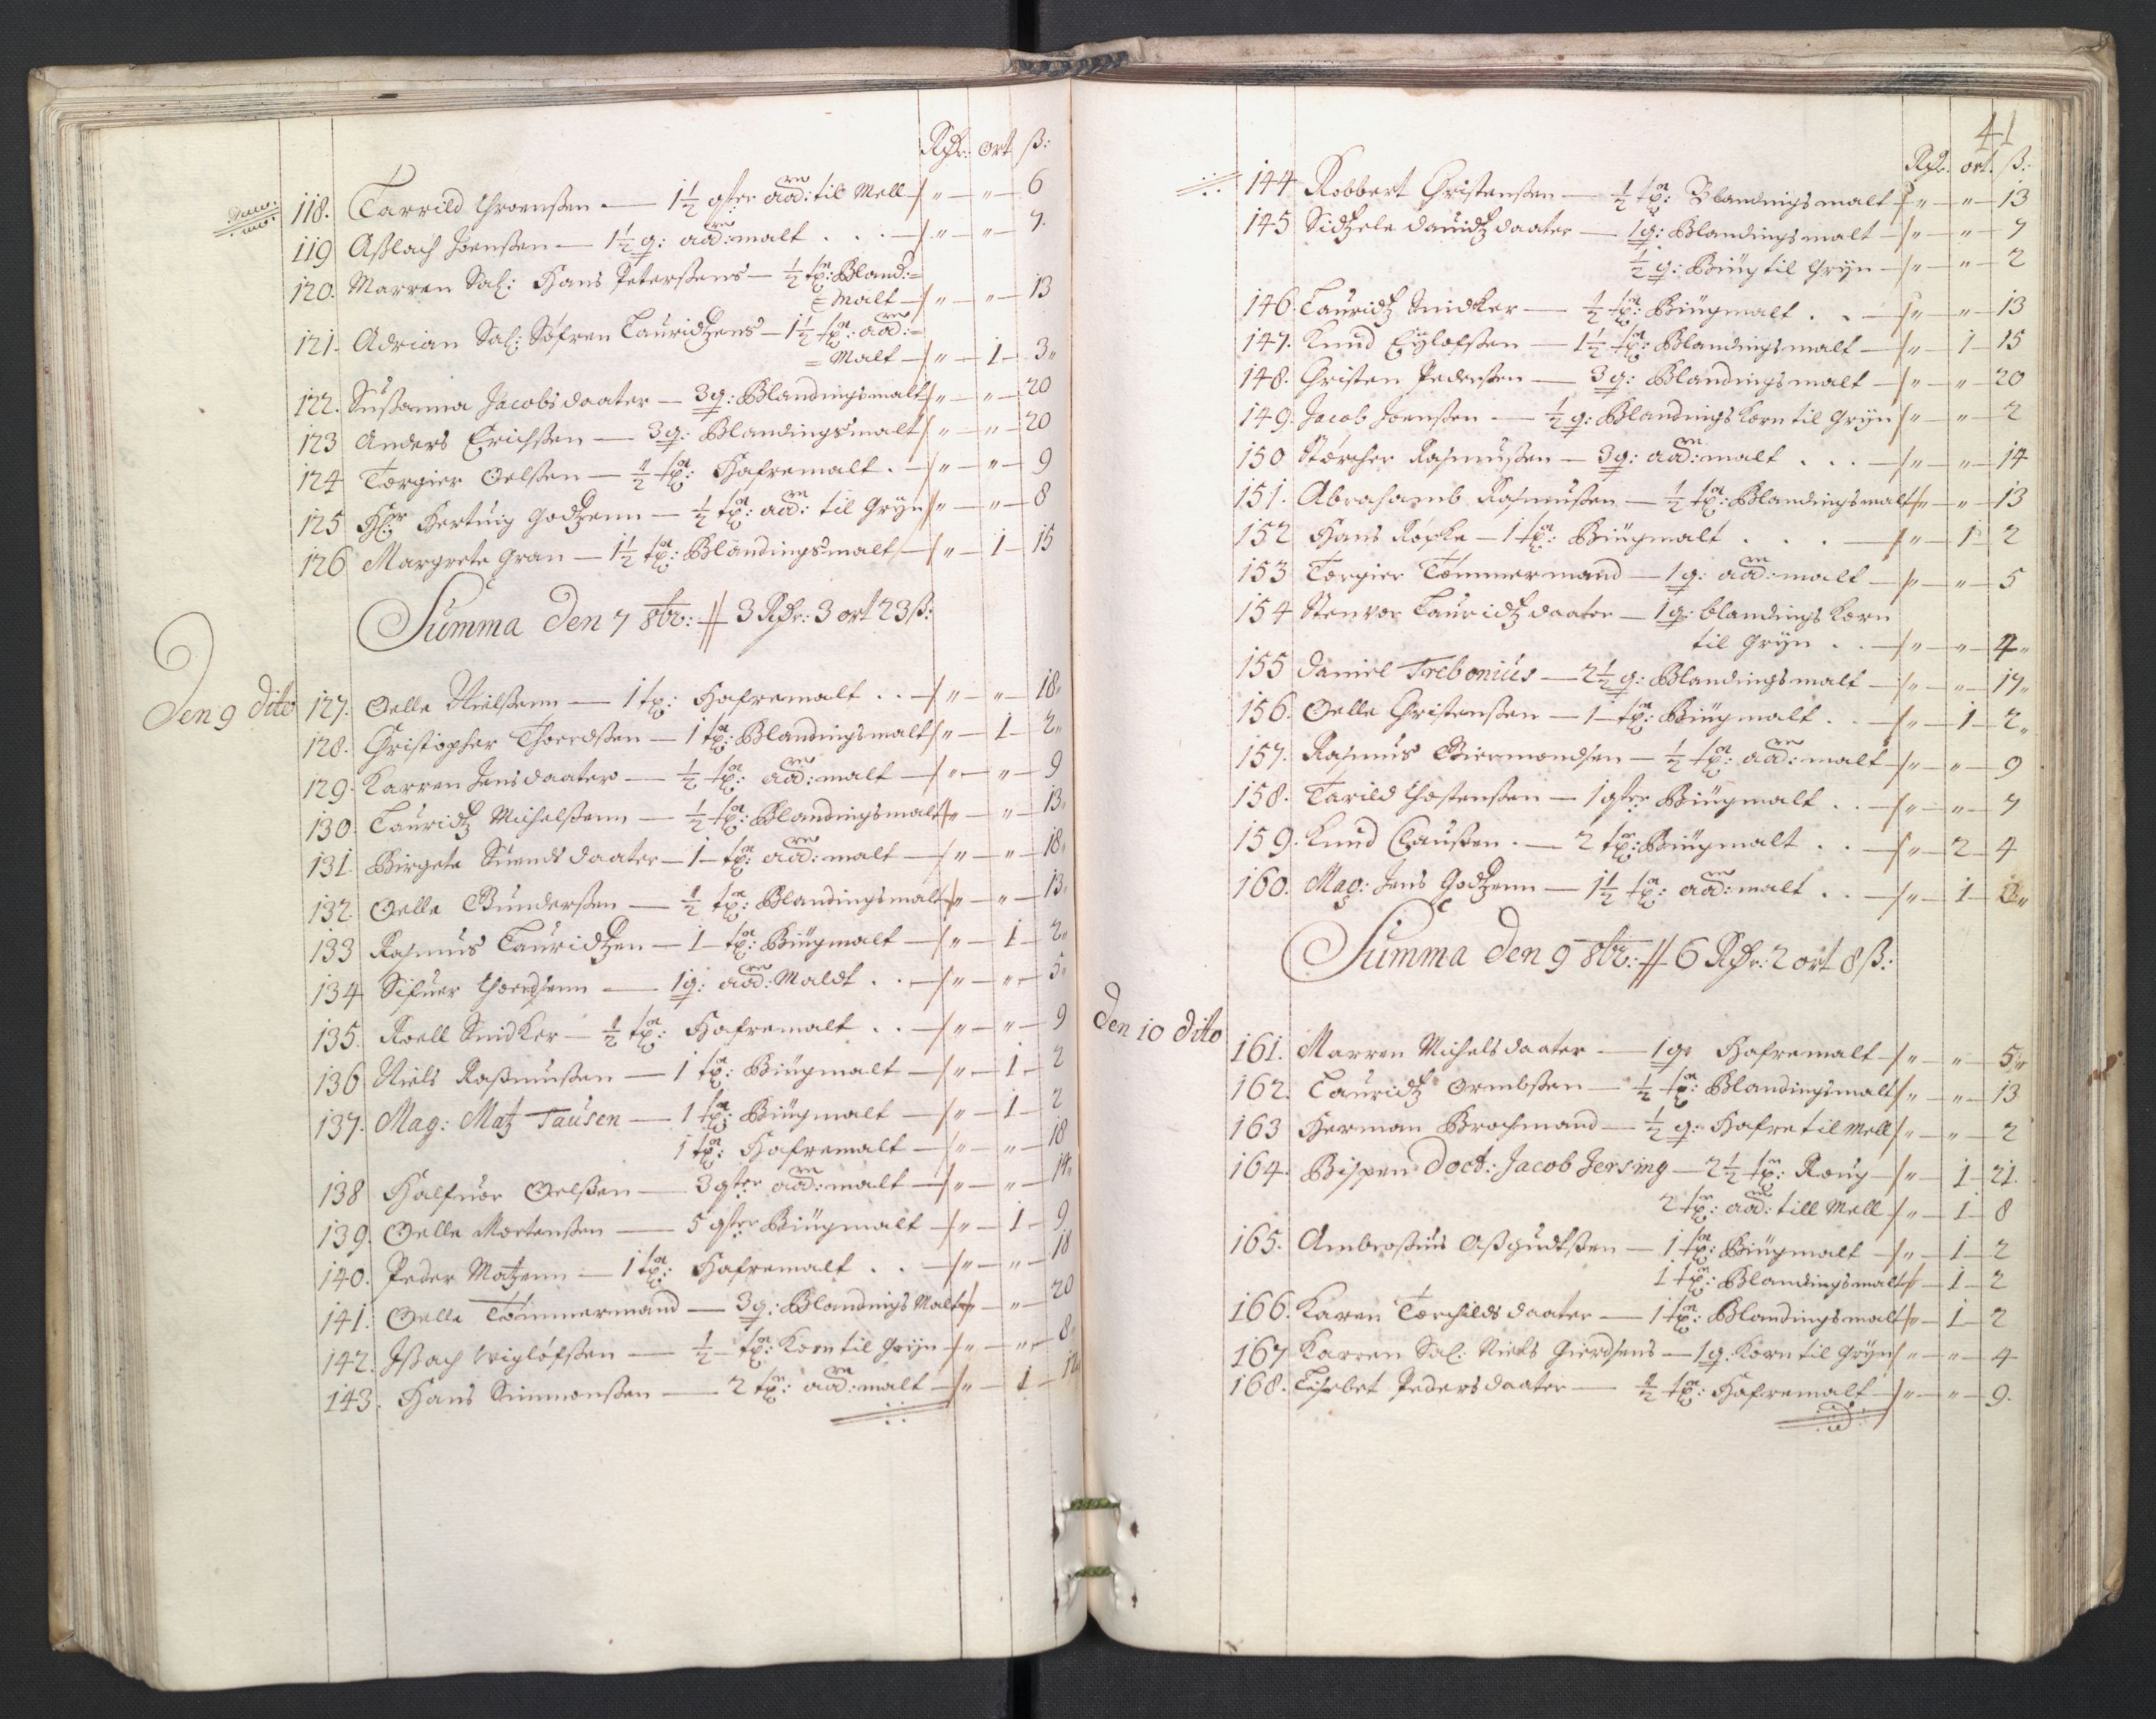 Rdr: ort ß:
118. Tarrild Throenßen — 1½ qter aad: til Mell — " — " — 6
119 Aßlach Joenßen — 1½ q: aad: malt . . — " — " — 7.
120. Marren Sal: Hans Peterßens — ½ tn: Bland:=
=Malt — " — " — 13
121. Adrian Sal: Söfren Lauridzens — 1½ tn: aad:=
=Malt — " — 1 — 3"
122. Sußanna Jacobsdaater — 3 q: Blandingsmalt " — " — 20
123 Anders Erichßen — 3 q: Blandingsmalt " — " — 20
124 Torgier Oelßen — ½ tn: Hafremalt . — " — " — 9
125 Hr Hertuig Godzenn — ½ tn: aad: til Gryn " — " — 8
126 Margrete Gran — 1½ tn: Blandingsmalt — " — 1 — 15
Summa Den 7 8br: // 3 Rdr: 3 ort 23 ß:
Den 9 dito
127. Oelle Nielßenn — 1 tn: Hafremalt . . — " — " — 18"
128. Christopher Thoerdßen — 1 tn: Blandingsmalt " — 1 — 2"
129. Karren Jensdaater — ½ tn: aad: malt — " — " — 9
130. Lauridz Michelßenn — ½ tn: Blandingsmalt " — " — 13"
131. Birgete Suendsdaater — 1 tn: aad: malt — " — " — 18"
132. Oelle Gunderßen — ½ tn: Blandingsmalt " — " — 13"
133 Rasmus Lauridzen — 1 tn: Biügmalt — " — 1 — 2"
134 Sifuer Thoerdsenn — 1 q: aad: Maldt . . — " — " — 5"
135. Roell Snidker — ½ tn: Hafremalt . . — " — " — 9
136 Niels Raßmußen — 1 tn: Biügmalt — " — 1 — 2
137. Mag: Matz Tausen — 1 tn: Biügmalt — " — 1 — 2
1 tn: Hafremalt — " — " — 18
138 Halfuor Oelßen — 3 qter aad: malt — " — " — 14"
139. Oelle Mortenßen — 5 qter Biügmalt — " — 1 — 9
140. Peder Matzenn — 1 tn: Hafremalt . . — " — " — 18
141. Oelle Tömmermand — 3 q: Blandings Malt " — " — 20
142. Ißach — ½ tn: Korn til Gryn — " — " — 8"
143. Hans Simmonßen — 2 tn: aad: malt — " — 1 — 12
41
Rdr. ort. ß:
144 Robbert Christenßen — ½ tn: Blandingsmalt " — " — 13
145 Sidzele Dauidzdaater — 1 q: Blandingsmalt — " — " — 7
½ q: Biüg til Gryn — " — " — 2
146. Lauridz Snidker — ½ tn: Biügmalt . . — " — " — 13
147. Knud Eylofßen — 1½ tn: Blandingsmalt — " — 1 — 15
148. Christen Pederßen — 3 q: Blandingsmalt — " — " — 20
149. Jacob Joenßen — ½ q: Blandings Korn til Gryn " — " — 2
150 Störcher Rasmußen — 3 q: aad: malt . . . — " — " — 14
151. Abrahamb Rasmußen — ½ tn: Blandingsmalt " — " — 13
152 Hans Röpke — 1 tn: Biügmalt . . . — " — 1 — 2
153 Torgier Tommermand — 1 q: aad: malt — " — " — 5
154 Stenvor Lauridzdaater — 1 q: blandings Korn
til Gryn . . — " — " — 4"
155 Daniel Trebonius — 2½ q: Blandingsmalt — " — " — 17"
156. Oelle Christenßen — 1 tn: Biügmalt . . — " — 1 — 2"
157. Rasmus Giermondsen — ½ tn: aad: malt — " — " — 9
158. Tarild Thostenßen — 1 qter Biügmalt . . — " — " — 7
159. Knud Claußen — 2 tn: Biügmalt . . — " — 2 — 4
160. Mag: Jens Godzenn — 1½ tn: aad: malt . . — " — 1 —
Summa Den 9 8br: // 6 Rdr: 2 ort 8 ß:
Den 10 dito
161. Marren Michelsdaater — 1 q: Hafremalt — " — " — 5"
162. Lauridz Ormbßen — ½ tn: Blandingsmalt " — " — 13
163 Herman Brochmand — ½ q: Hafre til Mell " — " — 2
164. Bispen Doct: Jacob Jersing — 2½ tn: Roug — " — 1 — 21.
2 tn: aad: till Mell — " — 1 — 8
165. Ambroßius Aßgudtßen — 1 tn: Biügmalt — " — 1 — 2
1 tn: Blandingsmalt " — 1 — 2
166. Karen Torchildsdaater — 1 tn: Blandingsmalt " — 1 — 2
167 Karren Sal: Niels Gierdsens — 1 q. Korn til Gryn " — " — 4
168. Lisebet Pedersdaater — ½ tn: Hafremalt — " — " — 9.